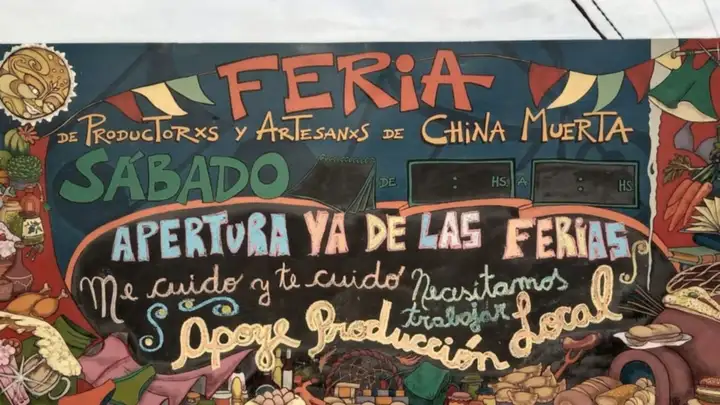 FERiA
DE PRODUCTORXS Y ARTESANXS DE CHINA MUERTA
SÁBADO DE : HS A : HS
APERTURA YA DE LAS FERIAS
Me cuido y te cuido Necesitamos
trabajar
Apoye Producción Local